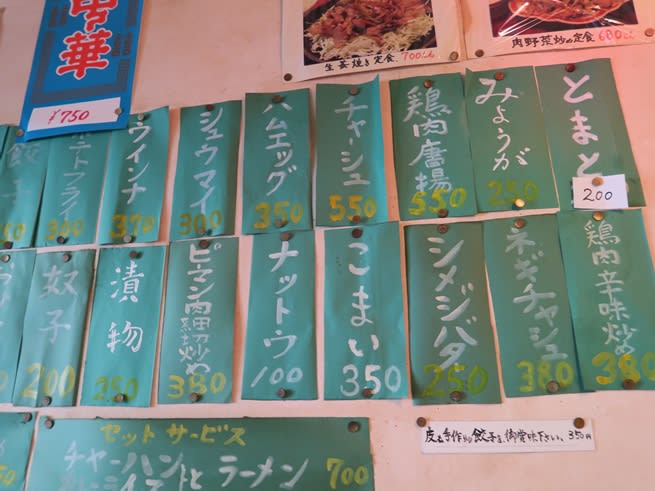 中華
¥750
生姜焼き定食 700えん
肉野菜炒め定食 680えん
とまと
200
みょうが
250
鶏肉唐揚
550
チャーシュー
550
ハムエッグ
350
シュウマイ
300
ウインナ
370
ポテトフライ
300
餃子
鶏肉辛味炒め
380
ネギチャーシュー
380
シメジバター
250
こまい
350
ナットウ
100
ピーマン肉細切炒め
380
漬物
250
奴子
200
セットサービス
チャーハンと ラーメン 700
皮も手作りの餃子を、御賞味下さい、350円